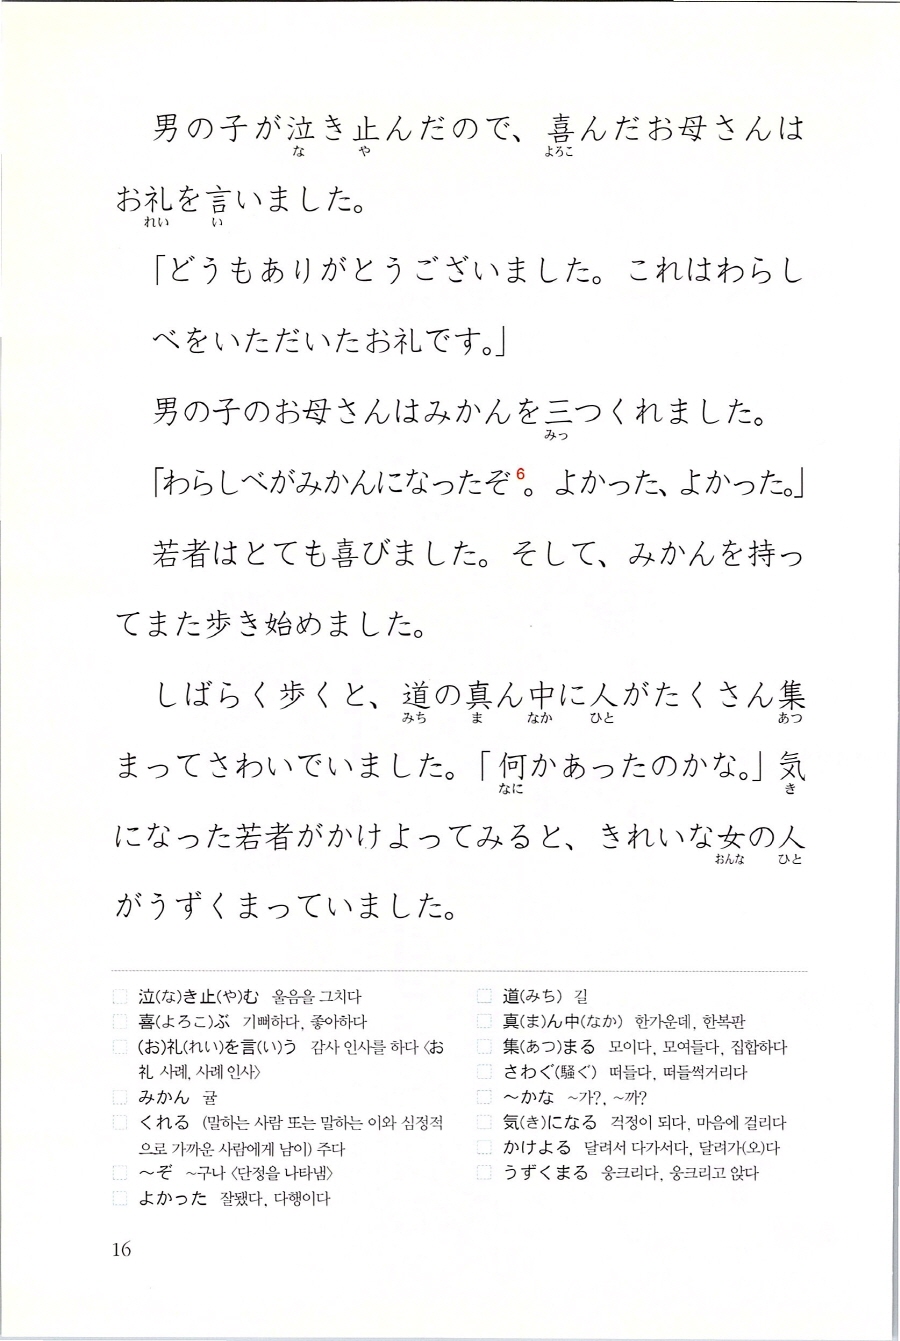 男の子が泣き止んだので、喜んだお母さんは
な や よろこ
お礼を言いました。
れい い
「どうもありがとうございました。これはわらし
べをいただいたお礼です。」
男の子のお母さんはみかんを三つくれました。
みっ
「わらしべがみかんになったぞ6。よかった、よかった。」
若者はとても喜びました。そして、みかんを持っ
てまた歩き始めました。
しばらく歩くと、道の真ん中に人がたくさん集
みち ま なか ひと あつ
まってさわいでいました。「何かあったのかな。」気
なに き
になった若者がかけよってみると、きれいな女の人
おんな ひと
がうずくまっていました。
泣(な)き止(や)む 울음을 그치다
喜(よろこ)ぶ 기뻐하다, 좋아하다
(お)礼(れい)を言(い)う 감사 인사를 하다 〈お
礼 사례, 사례 인사〉
みかん 귤
くれる (말하는 사람 또는 말하는 이와 심정적
으로 가까운 사람에게 남이) 주다
～ぞ ~구나 〈단정을 나타냄〉
よかった 잘됐다, 다행이다
道(みち) 길
真(ま)ん中(なか) 한가운데, 한복판
集(あつ)まる 모이다, 모여들다, 집합하다
さわぐ(騒ぐ) 떠들다, 떠들썩거리다
～かな ~가?, ~까?
気(き)になる 걱정이 되다, 마음에 걸리다
かけよる 달려서 다가서다, 달려가(오)다
うずくまる 웅크리다, 웅크리고 앉다
16